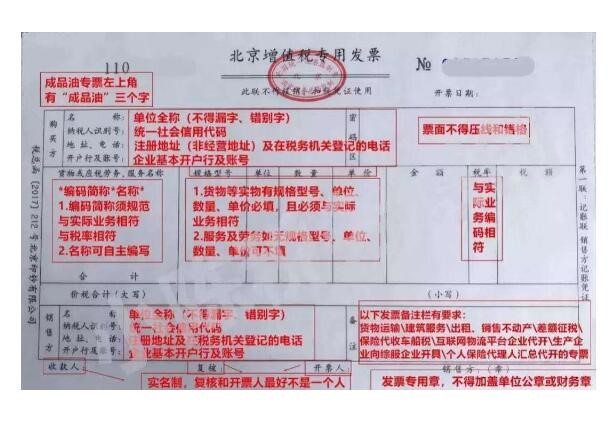 北京增值税专用发票
110
№
成品油专票左上角
有“成品油”三个字
此联不作报销、扣税凭证使用
开票日期：
购买方
名 称：
纳税人识别号：
地 址、电 话：
开户行及账号：
单位全称（不得漏字、错别字）
统一社会信用代码
注册地址（非经营地址）及在税务机关登记的电话
企业基本开户行及账号
密码区
票面不得压线和错格
货物或应税劳务、服务名称
规格型号
单位
数 量
单 价
金 额
税率
税 额
*编码简称*名称*
1.编码简称须规范
与实际业务相符
与税率相符
2.名称可自主编写
1.货物等实物有规格型号、单位、
数量、单价必填，且必须与实际
业务相符
2.服务及劳务如无规格型号、单位、
数量、单价可不填
与实际业务编码相符
合 计
价税合计（大写）
（小写）
销售方
名 称：
纳税人识别号：
地 址、电 话：
开户行及账号：
单位全称（不得漏字、错别字）
统一社会信用代码
注册地址及在税务机关登记的电话
企业基本开户行及账号
备注
以下发票备注栏有要求：
货物运输\建筑服务\出租、销售不动产\差额征税\
保险代收车船税\互联网物流平台企业代开\生产企
业向综服企业开具\个人保险代理人汇总代开的专票
收款人：
复核：
开票人：
销售方：（章）
实名制，复核和开票人最好不是一个人
发票专用章，不得加盖单位公章或财务章
税总函〔2017〕212号北京印钞有限公司
第一联：记账联 销售方记账凭证